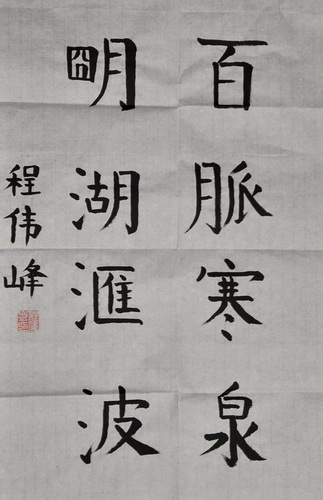 百脈寒泉
明湖滙波
程伟峰